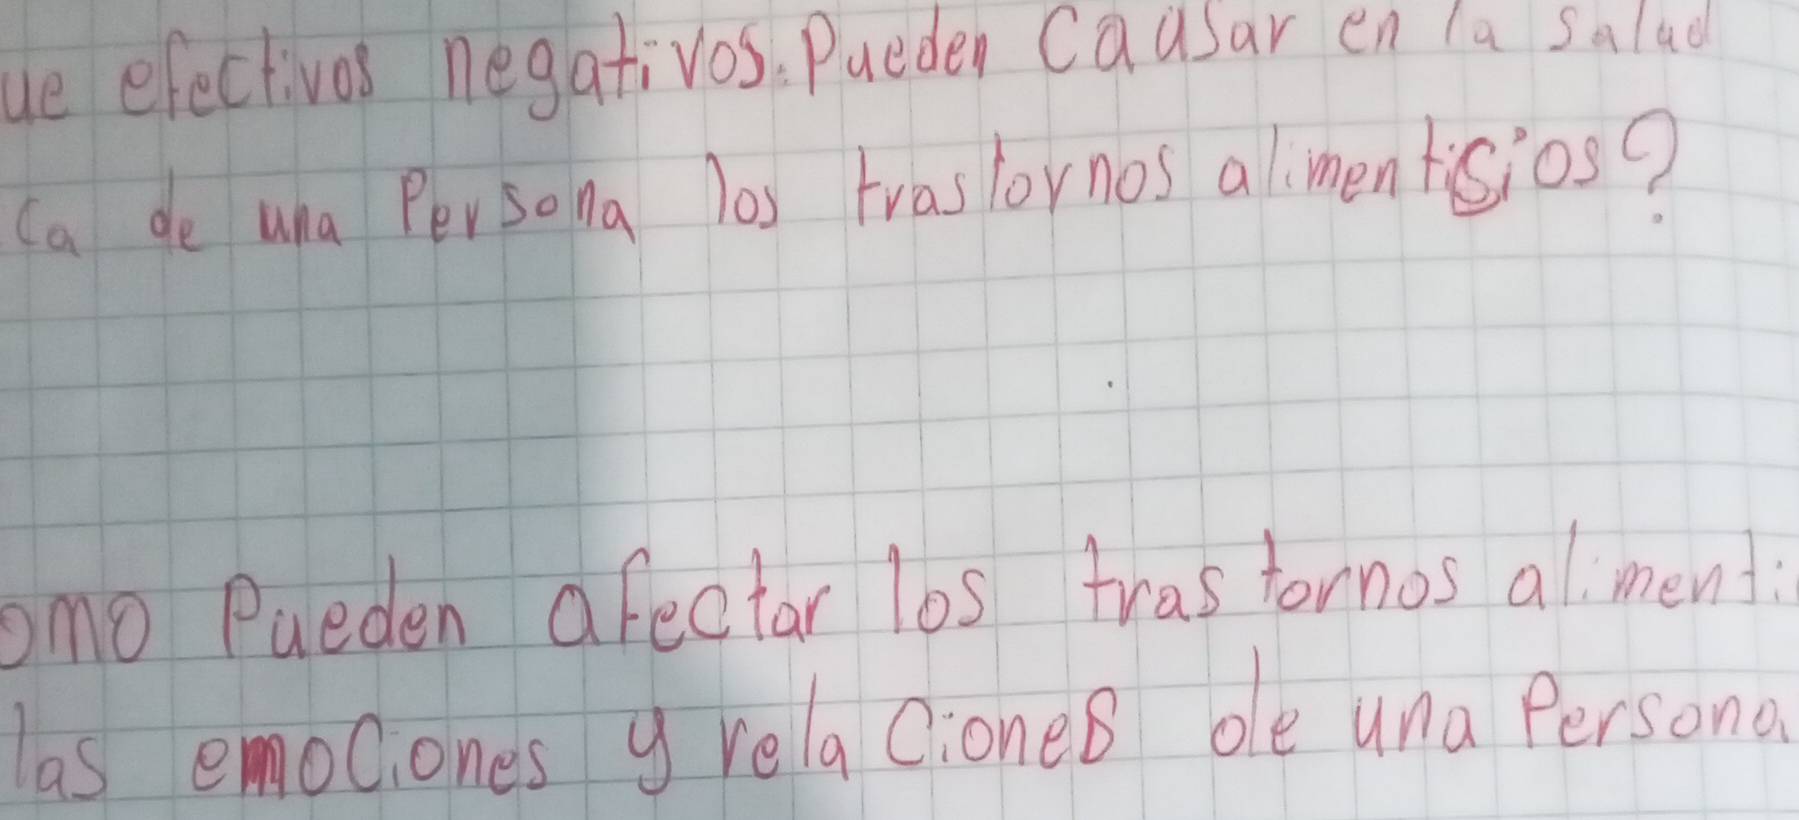 ue efectivos negativos. Pueden Causar en la salud
ca de una Persona los trastornos alimentisios?
omo Pueden afectar los trastornos alimenti
las emociones y relaciones de una Persona